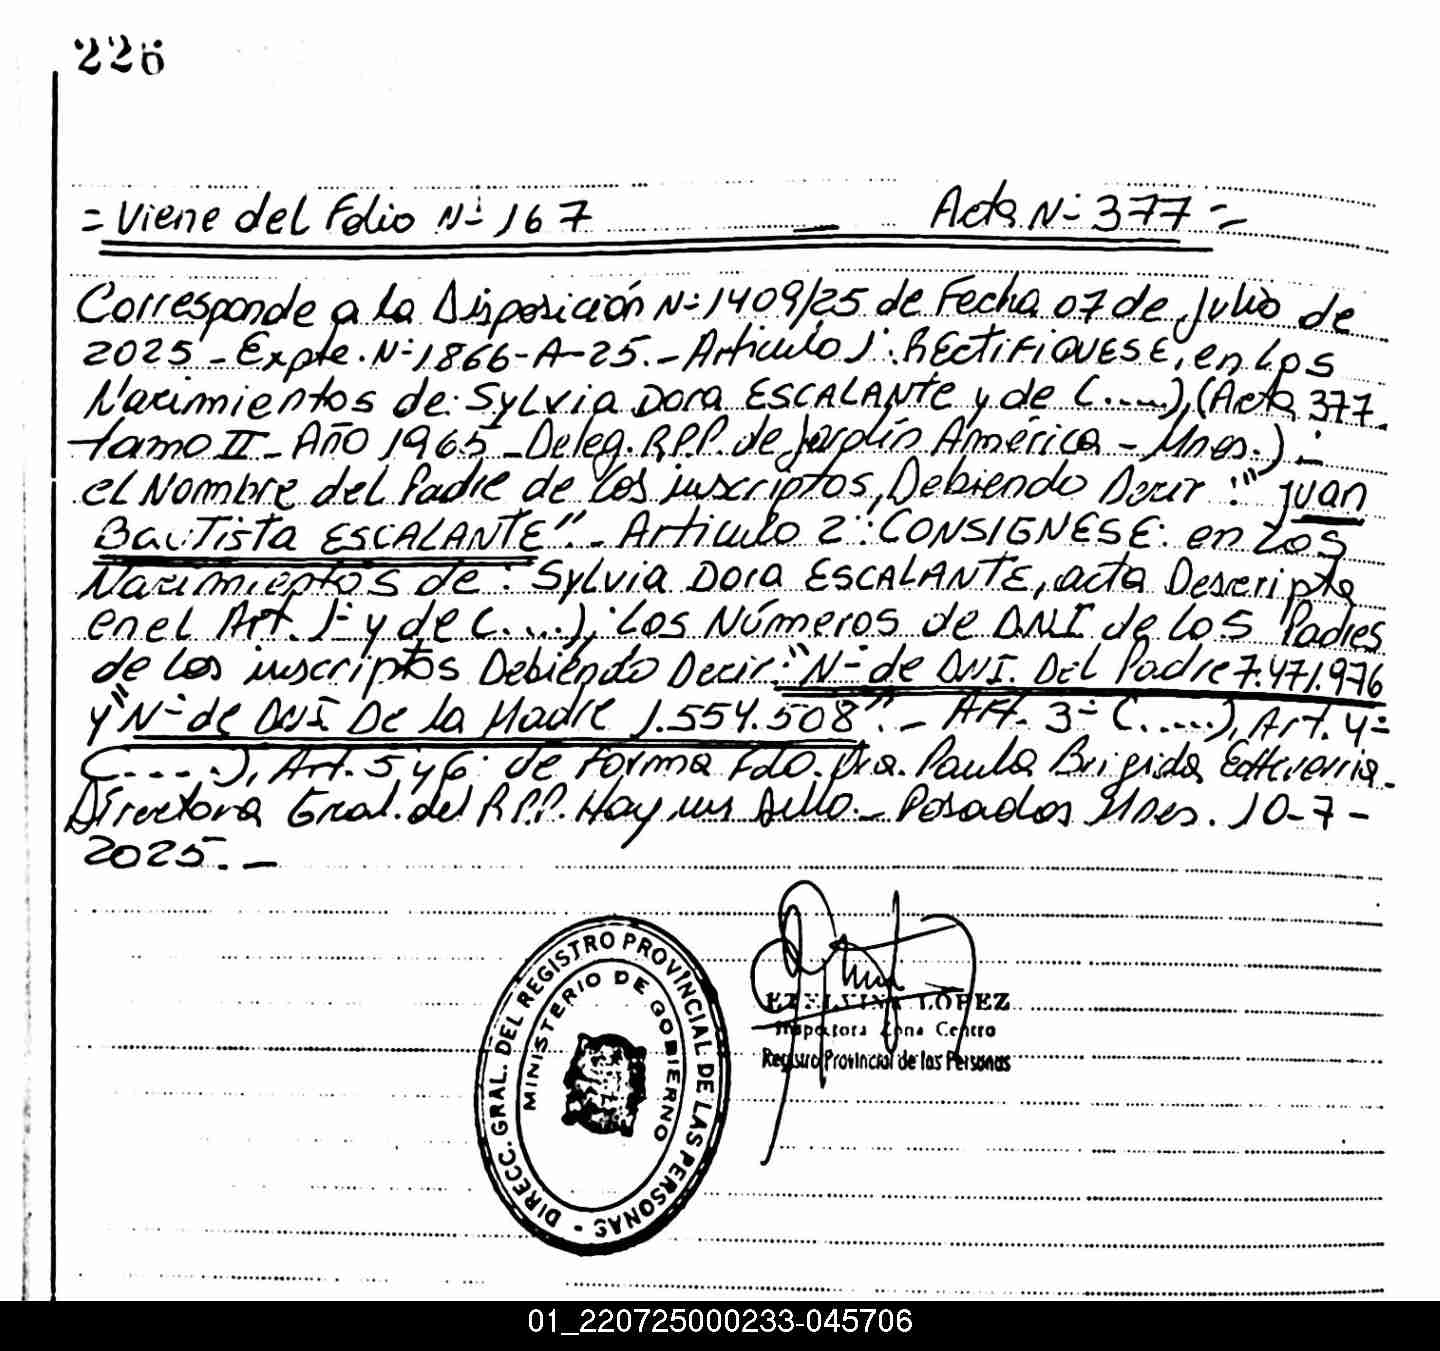 226
= Viene del Folio Nº 167 — Acta Nº 377 =
Corresponde a la Disposición Nº 1409/25 de Fecha 07 de Julio de
2025 - Expte. Nº 1866-A-25. - Articulo 1º: RECTIFIQUESE, en los
Nacimientos de: Sylvia Dora ESCALANTE y de (.....), (Acta 377
tomo II - Año 1965 - Deleg. R.P.P. de Jardín América - Mnes.) :-
el Nombre del Padre de los inscriptos, Debiendo Decir: "Juan
Bautista ESCALANTE". - Articulo 2º: CONSIGNESE: en los
Nacimientos de: Sylvia Dora ESCALANTE, acta Descripta
en el Art. 1º y de (.....), los Números de DNI de los Padres
de los inscriptos Debiendo Decir: "Nº de DNI. Del Padre 7.471.976
y "Nº de DNI De la Madre 1.554.508". - Art. 3º (.....), Art. 4º
(.....), Art. 5 y 6º de forma Fdo. Dra. Paula Brigida Echeverria.
Directora Gral. del R.P.P. Hay un Sello. - Posadas Mnes. 10-7-
2025. -
DIRECC. GRAL. DEL REGISTRO PROVINCIAL DE LAS PERSONAS -
MINISTERIO DE GOBIERNO
ETELVINA LOPEZ
Inspectora Zona Centro
Registro Provincial de las Personas
01_220725000233-045706